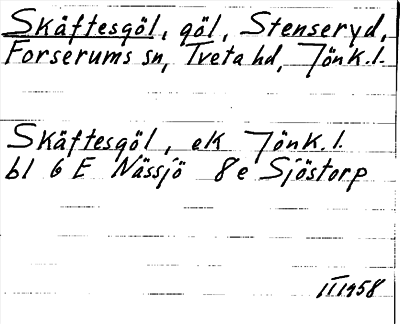 Skäftesgöl, göl, Stenseryd,
Forserums sn, Tveta hd, Jönk.l.
Skäftesgöl, ek Jönk.l.
bl 6 E Nässjö 8e Sjöstorp
II 1958